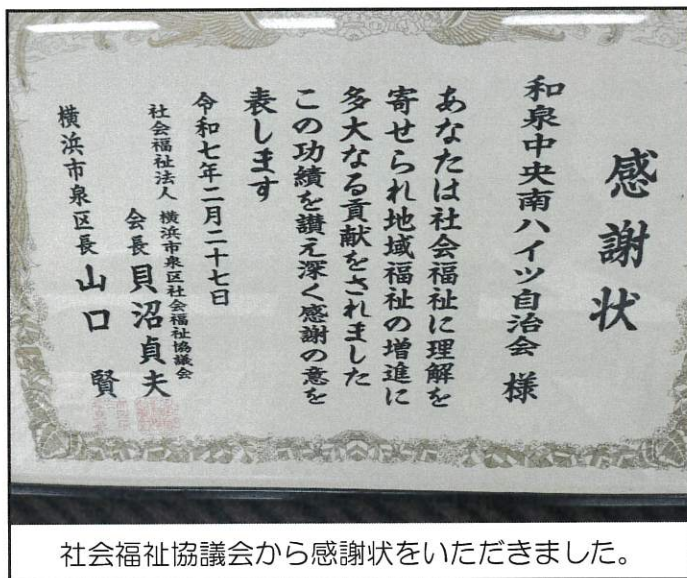 感謝状
和泉中央南ハイツ自治会 様
あなたは社会福祉に理解を
寄せられ地域福祉の増進に
多大なる貢献をされました
この功績を讃え深く感謝の意を
表します
令和七年二月二十七日
社会福祉法人 横浜市泉区社会福祉協議会
会長 貝沼貞夫
横浜市泉区長 山口 賢
社会福祉協議会から感謝状をいただきました。